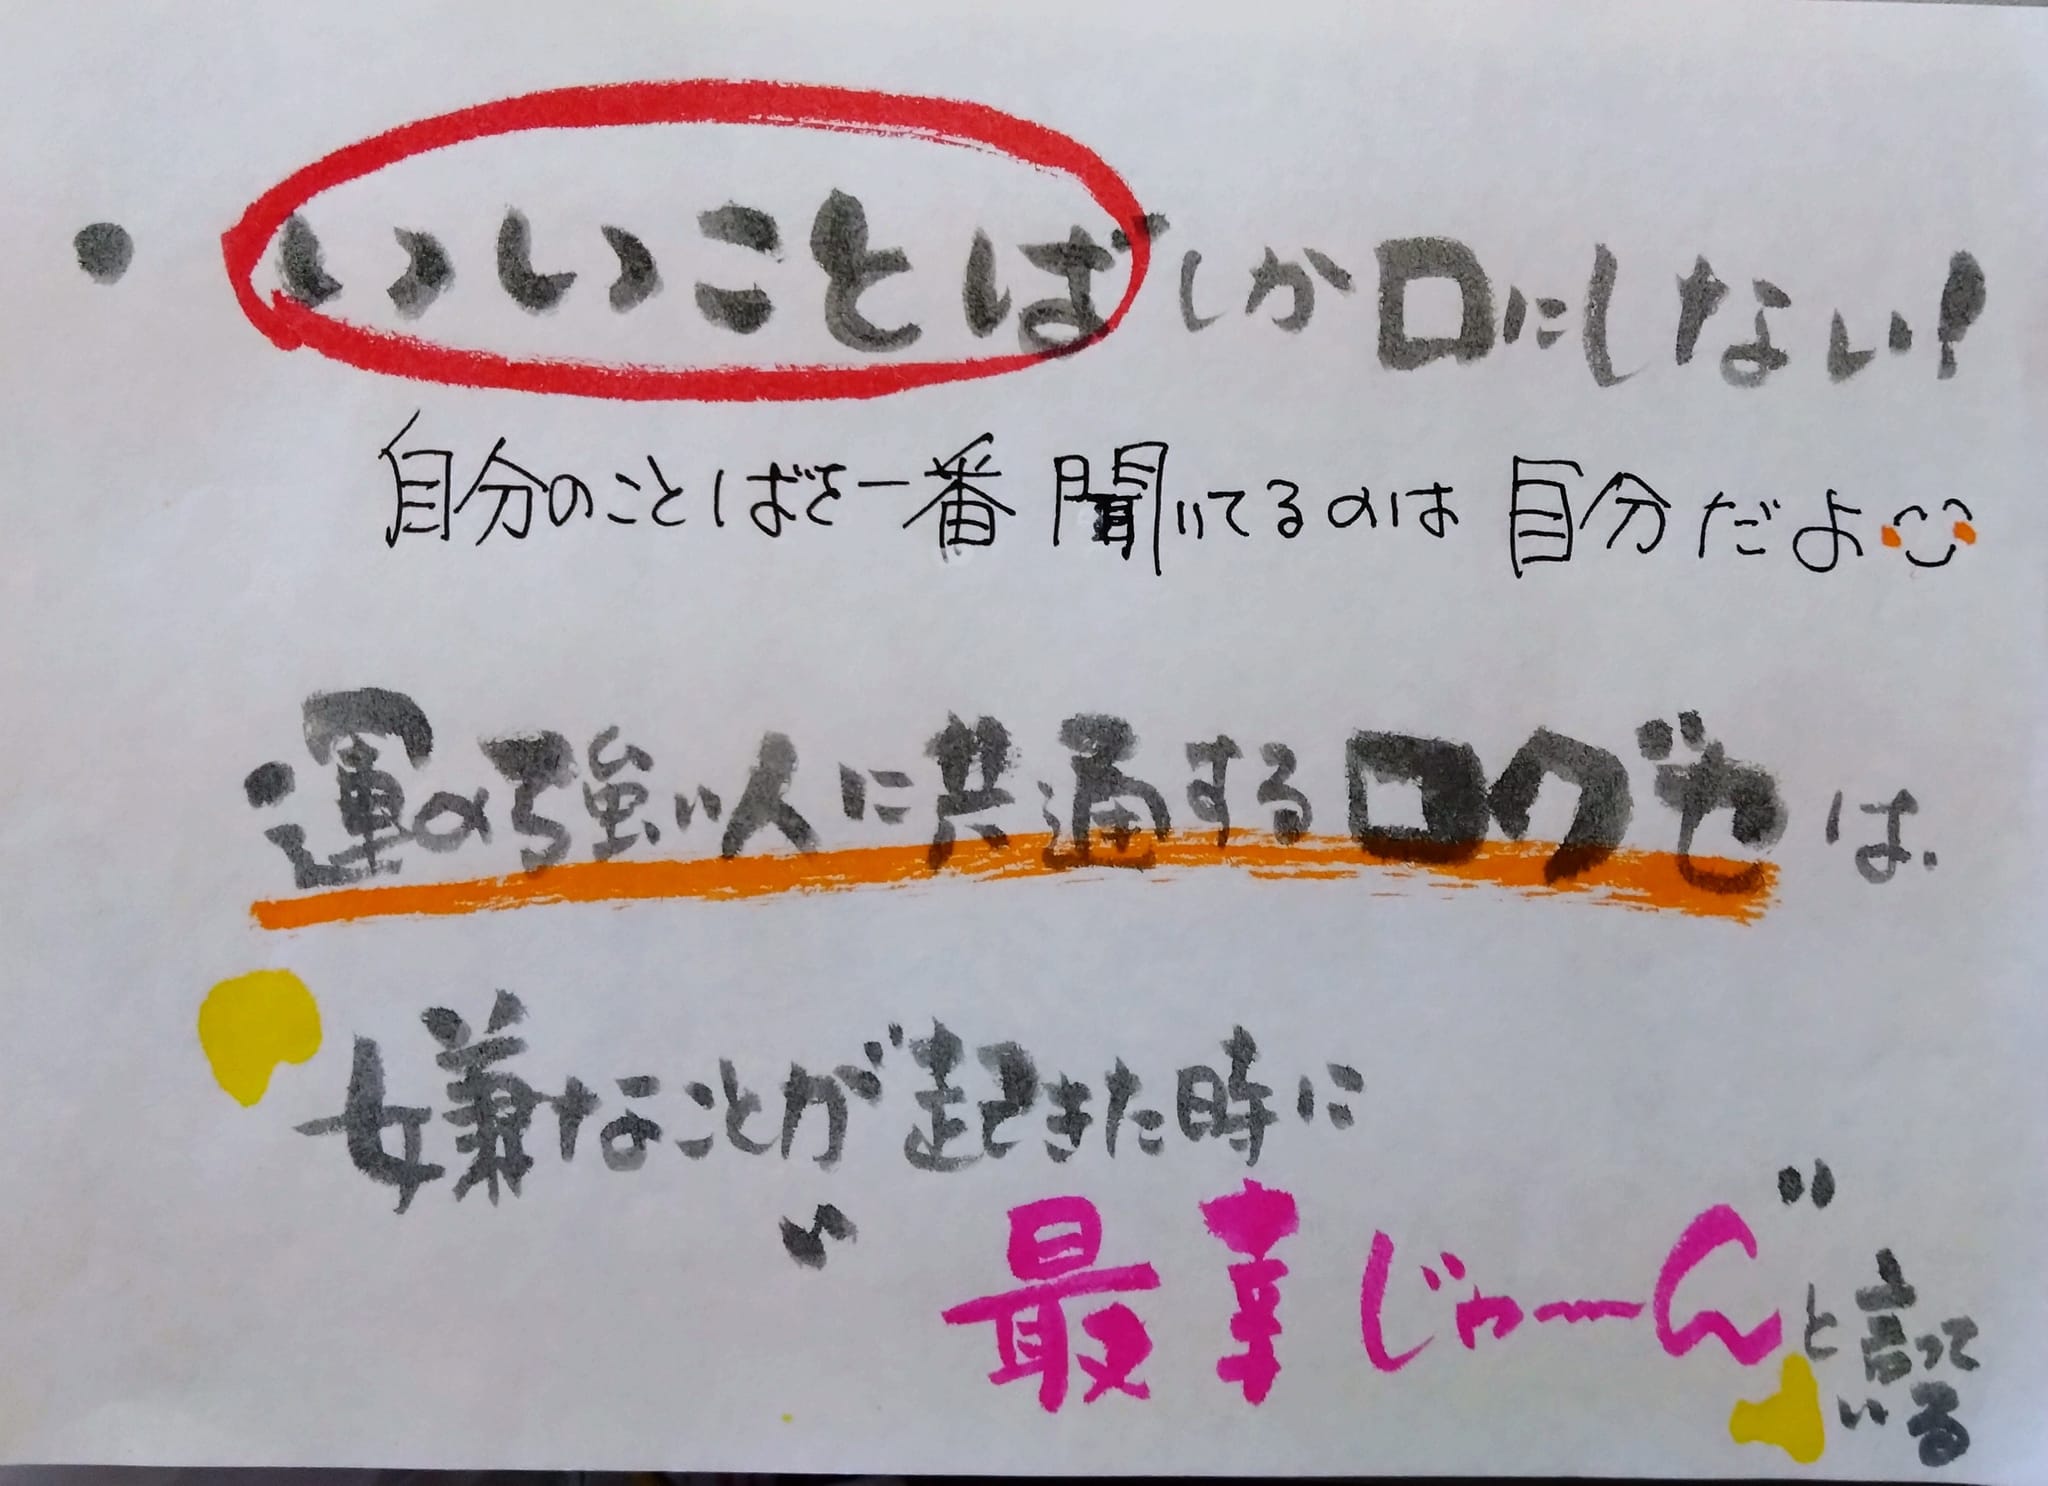 ・いいことばしか口にしない!
自分のことばを一番聞いてるのは自分だよ
運の強い人に共通する口グセは、
嫌なことが起きた時に
"最幸じゃーん"と言っている